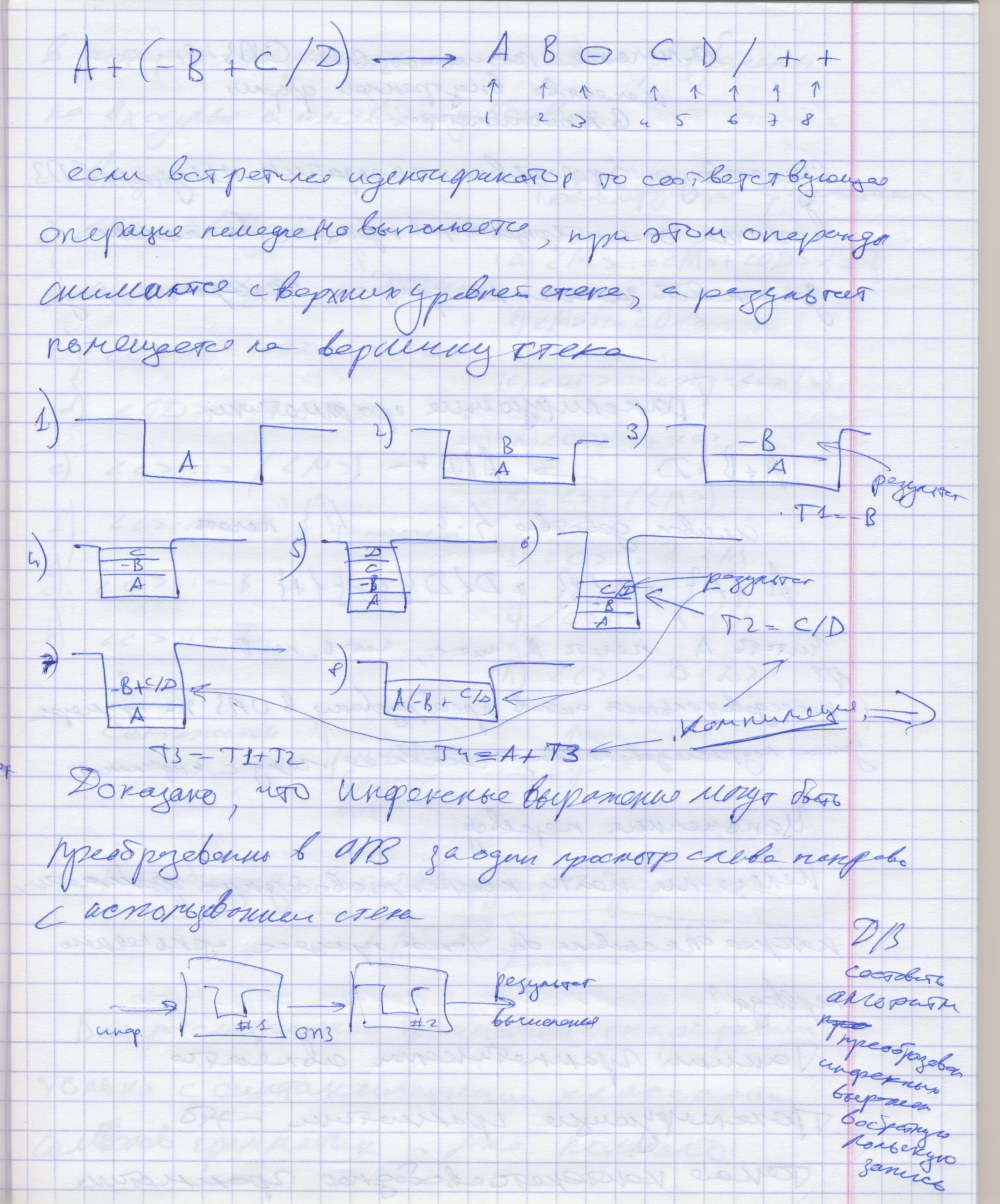 A + (-B + C / D) ⟷ A B ⊖ C D / + +
1 2 3 4 5 6 7 8
если встретился идентификатор то соответствующая
операция немедлено выполняется, при этом операнды
снимаются с верхних уровней стека, а результат
помещается на вершину стека
1) A
2) B
A
3) -B
A
результат
T1=-B
4) C
-B
A
5) D
C
-B
A
6) C/D
-B
A
результат
T2 = C/D
7) -B+C/D
A
8) A(-B + C/D)
компиляция ⇒
T3 = T1+T2
T4 = A+T3
Доказано, что инфексные выражение могут быть
преобразованны в ОПЗ за один просмотр слева направо
с использованием стека
инф. #1 ОПЗ #2 результат
вычисления
D/З
составить
алгоритм
преобразован
инфексных
выражен
в обратную
польскую
запись